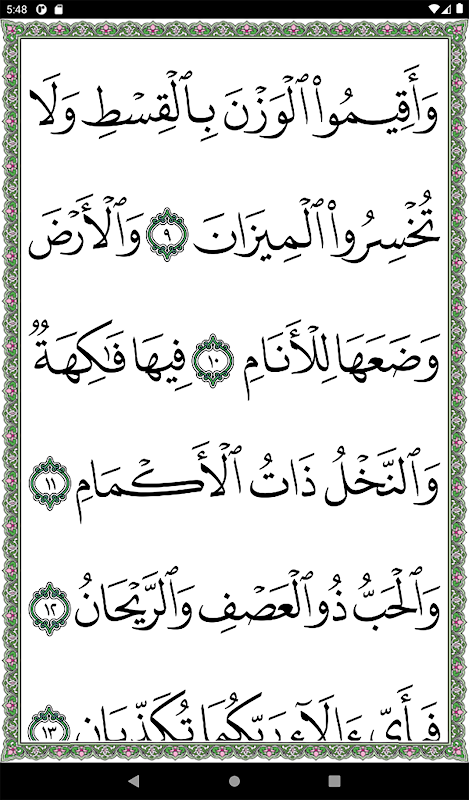 5:48
وَأَقِيمُوا۟ ٱلْوَزْنَ بِٱلْقِسْطِ وَلَا
تُخْسِرُوا۟ ٱلْمِيزَانَ ٩ وَٱلْأَرْضَ
وَضَعَهَا لِلْأَنَامِ ١٠ فِيهَا فَـٰكِهَةٌ
وَٱلنَّخْلُ ذَاتُ ٱلْأَكْمَامِ ١١
وَٱلْحَبُّ ذُو ٱلْعَصْفِ وَٱلرَّيْحَانُ ١٢
فَبِأَىِّ ءَالَآءِ رَبِّكُمَا تُكَذِّبَانِ ١٣